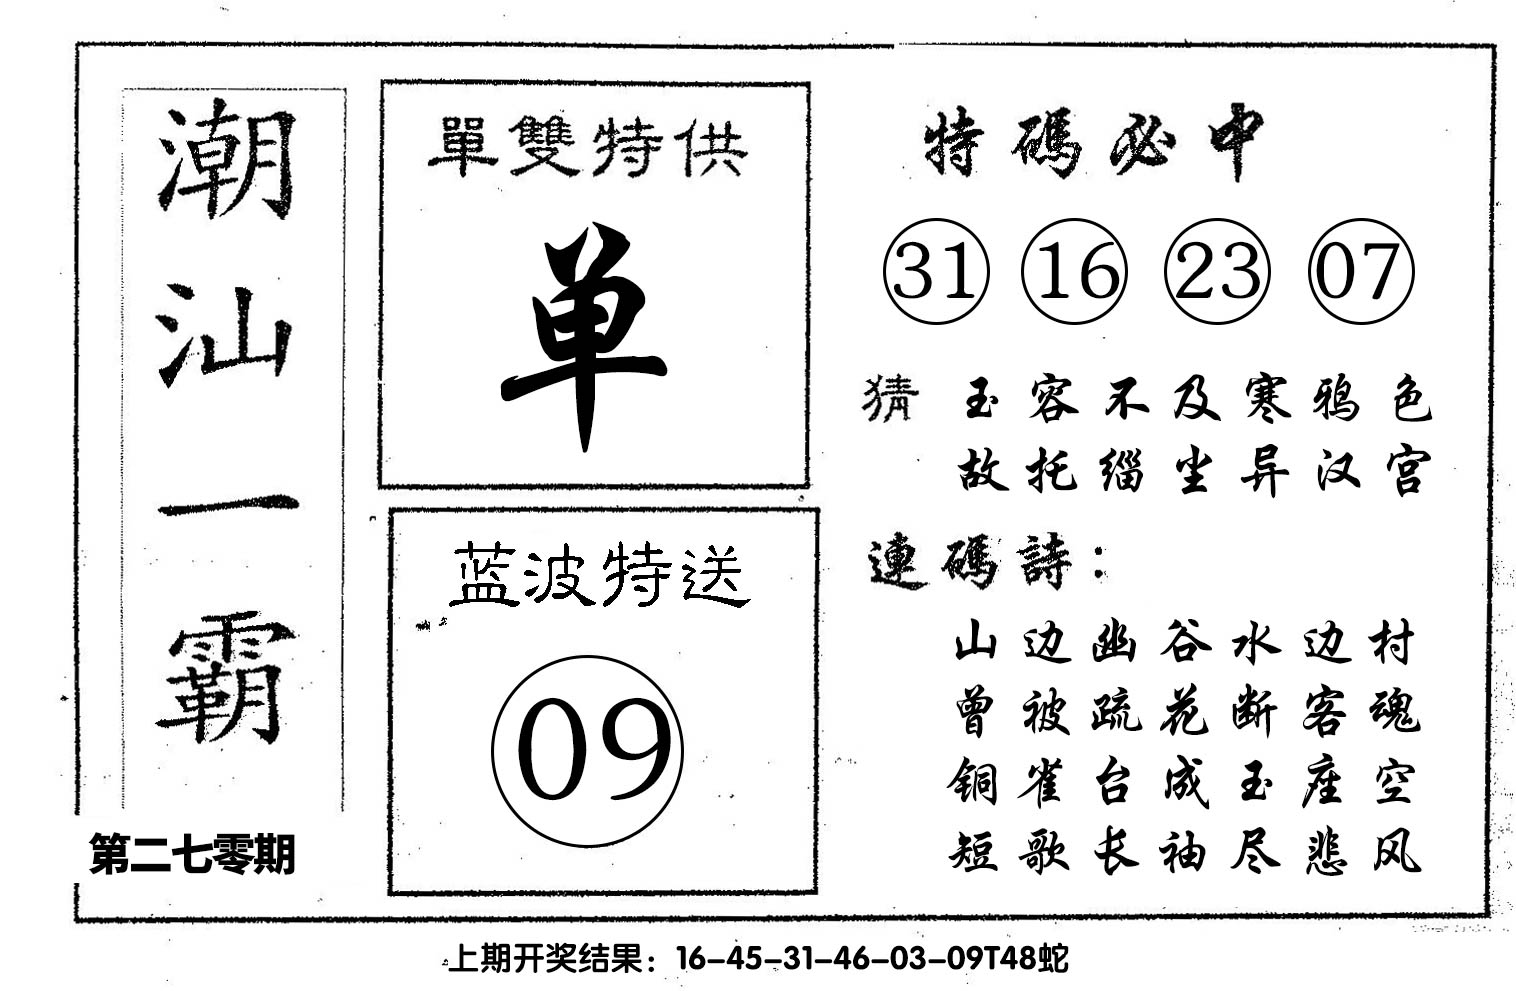 潮汕一霸
第二七零期
單雙特供
单
蓝波特送
09
特碼必中
31 16 23 07
猜 玉容不及寒鸦色
故托缁尘异汉宫
連碼詩：
山边幽谷水边村
曾被疏花断客魂
铜雀台成玉座空
短歌长袖尽悲风
上期开奖结果：16-45-31-46-03-09T48蛇